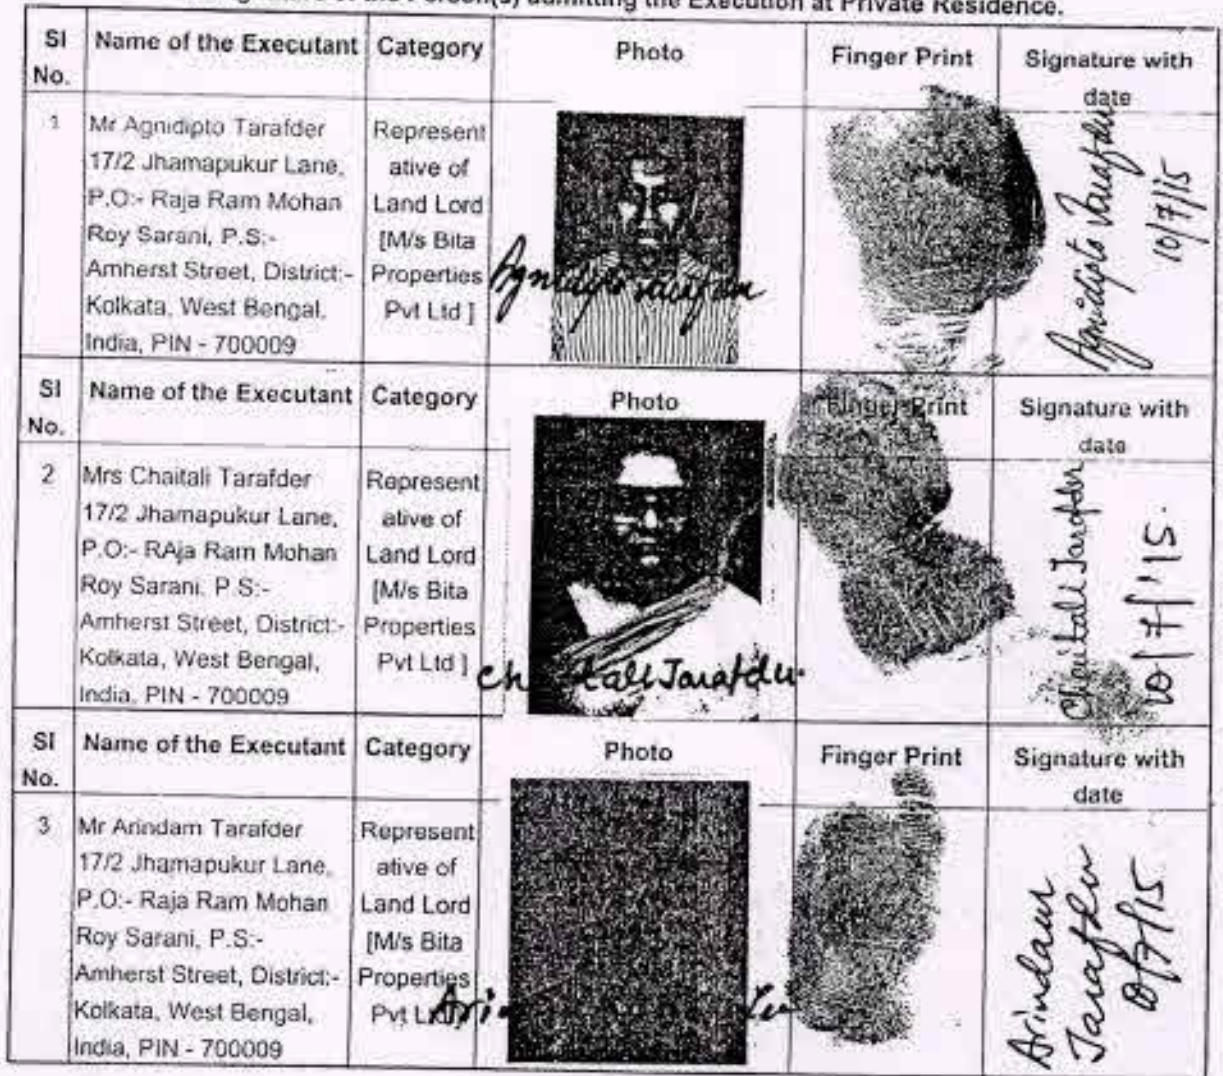 Person(s) admitting the Execution at Private Residence.
Sl No. Name of the Executant Category Photo Finger Print Signature with date
1 Mr Agnidipto Tarafder
17/2 Jhamapukur Lane,
P.O:- Raja Ram Mohan
Roy Sarani, P.S:-
Amherst Street, District:-
Kolkata, West Bengal,
India, PIN - 700009
Represent
ative of
Land Lord
[M/s Bita
Properties
Pvt Ltd ]
Agnidipto Tarafder
Agnidipto Tarafder
10/7/15
Sl No. Name of the Executant Category Photo Finger Print Signature with date
2 Mrs Chaitali Tarafder
17/2 Jhamapukur Lane,
P.O:- RAja Ram Mohan
Roy Sarani, P.S:-
Amherst Street, District:-
Kolkata, West Bengal,
India, PIN - 700009
Represent
ative of
Land Lord
[M/s Bita
Properties
Pvt Ltd ]
Chaitali Tarafder
Chaitali Tarafder
10/7/15.
Sl No. Name of the Executant Category Photo Finger Print Signature with date
3 Mr Arindam Tarafder
17/2 Jhamapukur Lane,
P.O:- Raja Ram Mohan
Roy Sarani, P.S:-
Amherst Street, District:-
Kolkata, West Bengal,
India, PIN - 700009
Represent
ative of
Land Lord
[M/s Bita
Properties
Pvt
Arindam
Tarafder